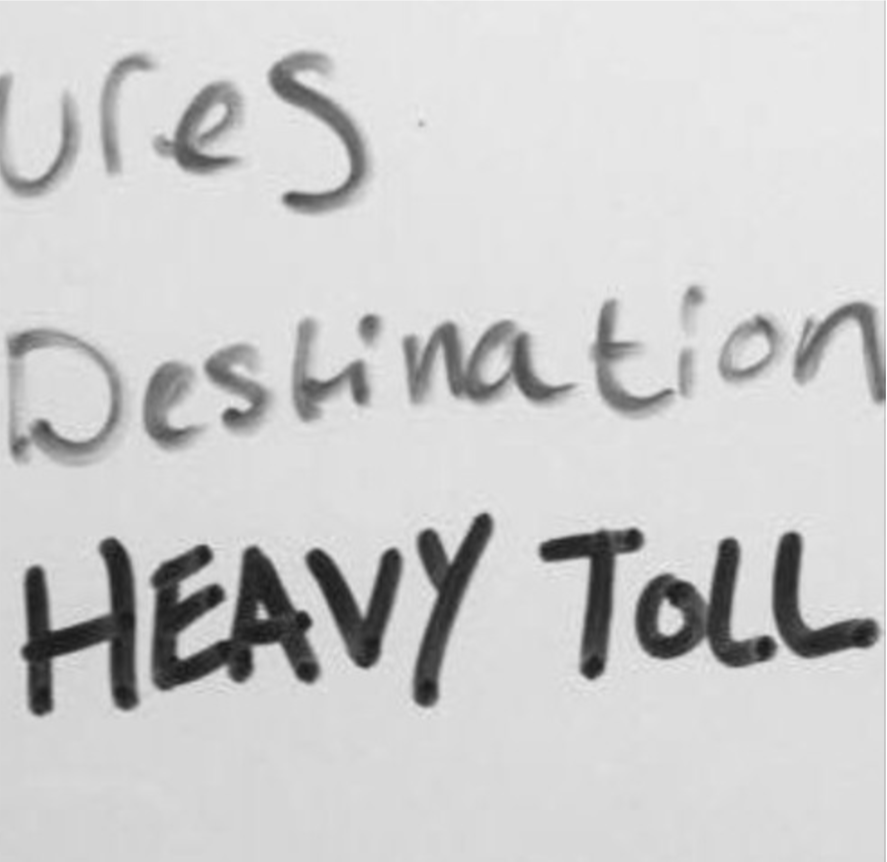 ures
Destination
HEAVY TOLL